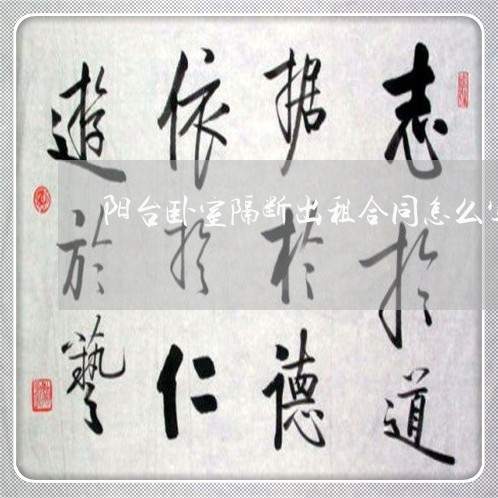 志於道
据於德
依於仁
遊於藝
阳台卧室隔断出租合同怎么